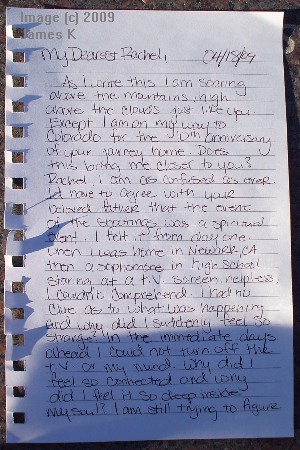 Image (c) 2009
James K
My Dearest Rachel, 04/19/09
As I write this I am soaring
above the mountains, high
above the clouds just like you.
Except I am on my way to
Colorado for the 10th anniversary
of your journey home. Does
this bring me closer to you?
Rachel I am as confused as ever.
I'd have to agree with your
beloved father that the event
of the shootings was a spiritual
event. I felt it from day one
when I was home in Newark, CA
then a sophomore in high school
staring at a T.V. screen helpless.
I couldn't comprehend. I had no
clue as to what was happening
and why did I suddenly feel so
strange. In the immediate days
ahead I could not turn off the
T.V. or my mind. Why did I
feel so connected and why
did I feel it so deep inside
my soul? I am still trying to figure